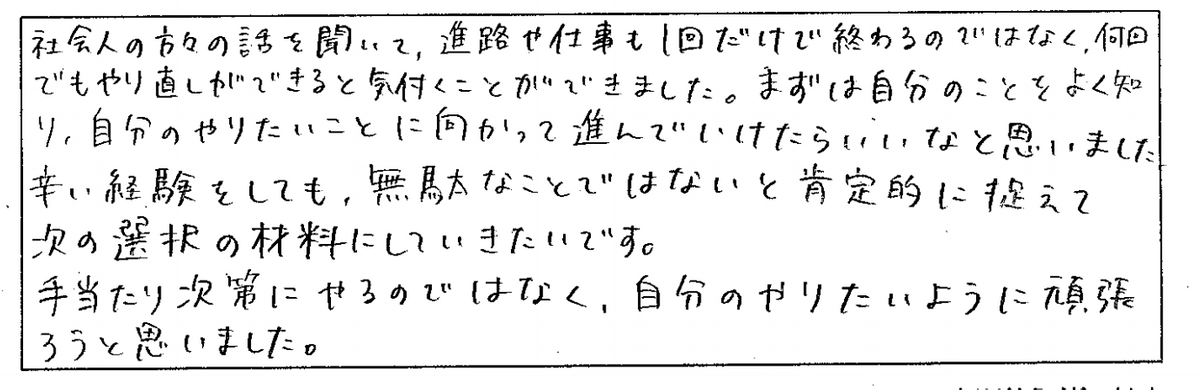 社会人の方々の話を聞いて、進路や仕事も1回だけで終わるのではなく、何回
でもやり直しができると気付くことができました。まずは自分のことをよく知
り、自分のやりたいことに向かって進んでいけたらいいなと思いました
辛い経験をしても、無駄なことではないと肯定的に捉えて
次の選択の材料にしていきたいです。
手当たり次第にやるのではなく、自分のやりたいように頑張
ろうと思いました。